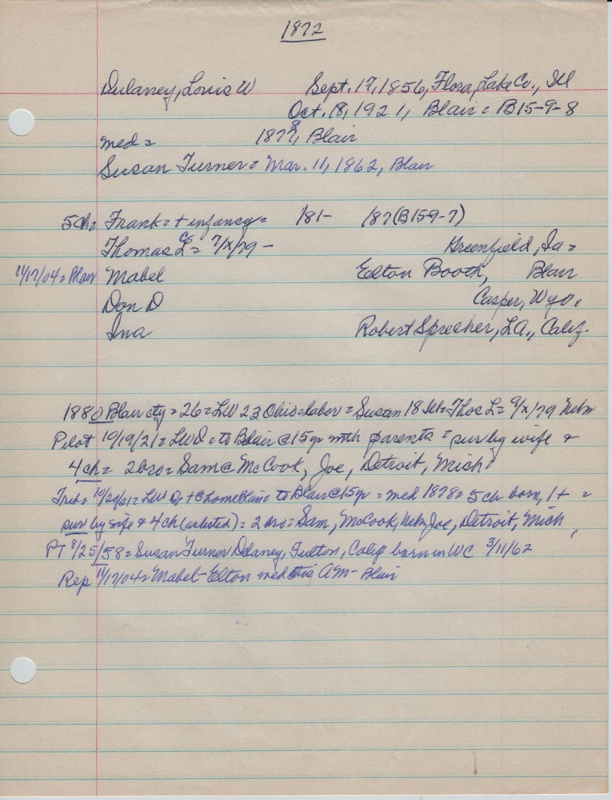 1872
Dulaney, Louis W Sept. 17, 1856, Flora, Lake Co., Ill
Oct. 18, 1921, Blair = B15-9-8
med = 1878, Blair
Susan Turner = Mar. 11, 1862, Blair
5ch = Frank = + infancy = 181- 187(B15-9-7)
Thomas L = 9/X/79 - Greenfield, Ia =
11/17/04 = Blair Mabel Elton Booth, Blair
Don D Casper, Wyo.
Ina Robert Sprecher, LA., Calif.
1880 Blair cty = 26 = LW 23 Ohio = labor = Susan 18 = Thos L = 9/X/79 Nebr
Pilot 10/19/21 = LW D = to Blair @ 15 yr with parents = sur by wife &
4 ch = 2 bro = Sam @ McCook, Joe, Detroit, Mich =
Trib = LW D + @ home Blair to Blair @ 15 yr = med 1878 = 5 ch born, 1 + =
sur by wife & 4 ch (as listed) = 2 bro = Sam, McCook, Nebr Joe, Detroit, Mich,
PT 9/25/58 = Susan Turner Delaney, Fulton, Calif born in WC 3/11/62
Rep 11/17/04 = Mabel - Elton med this AM - Blair